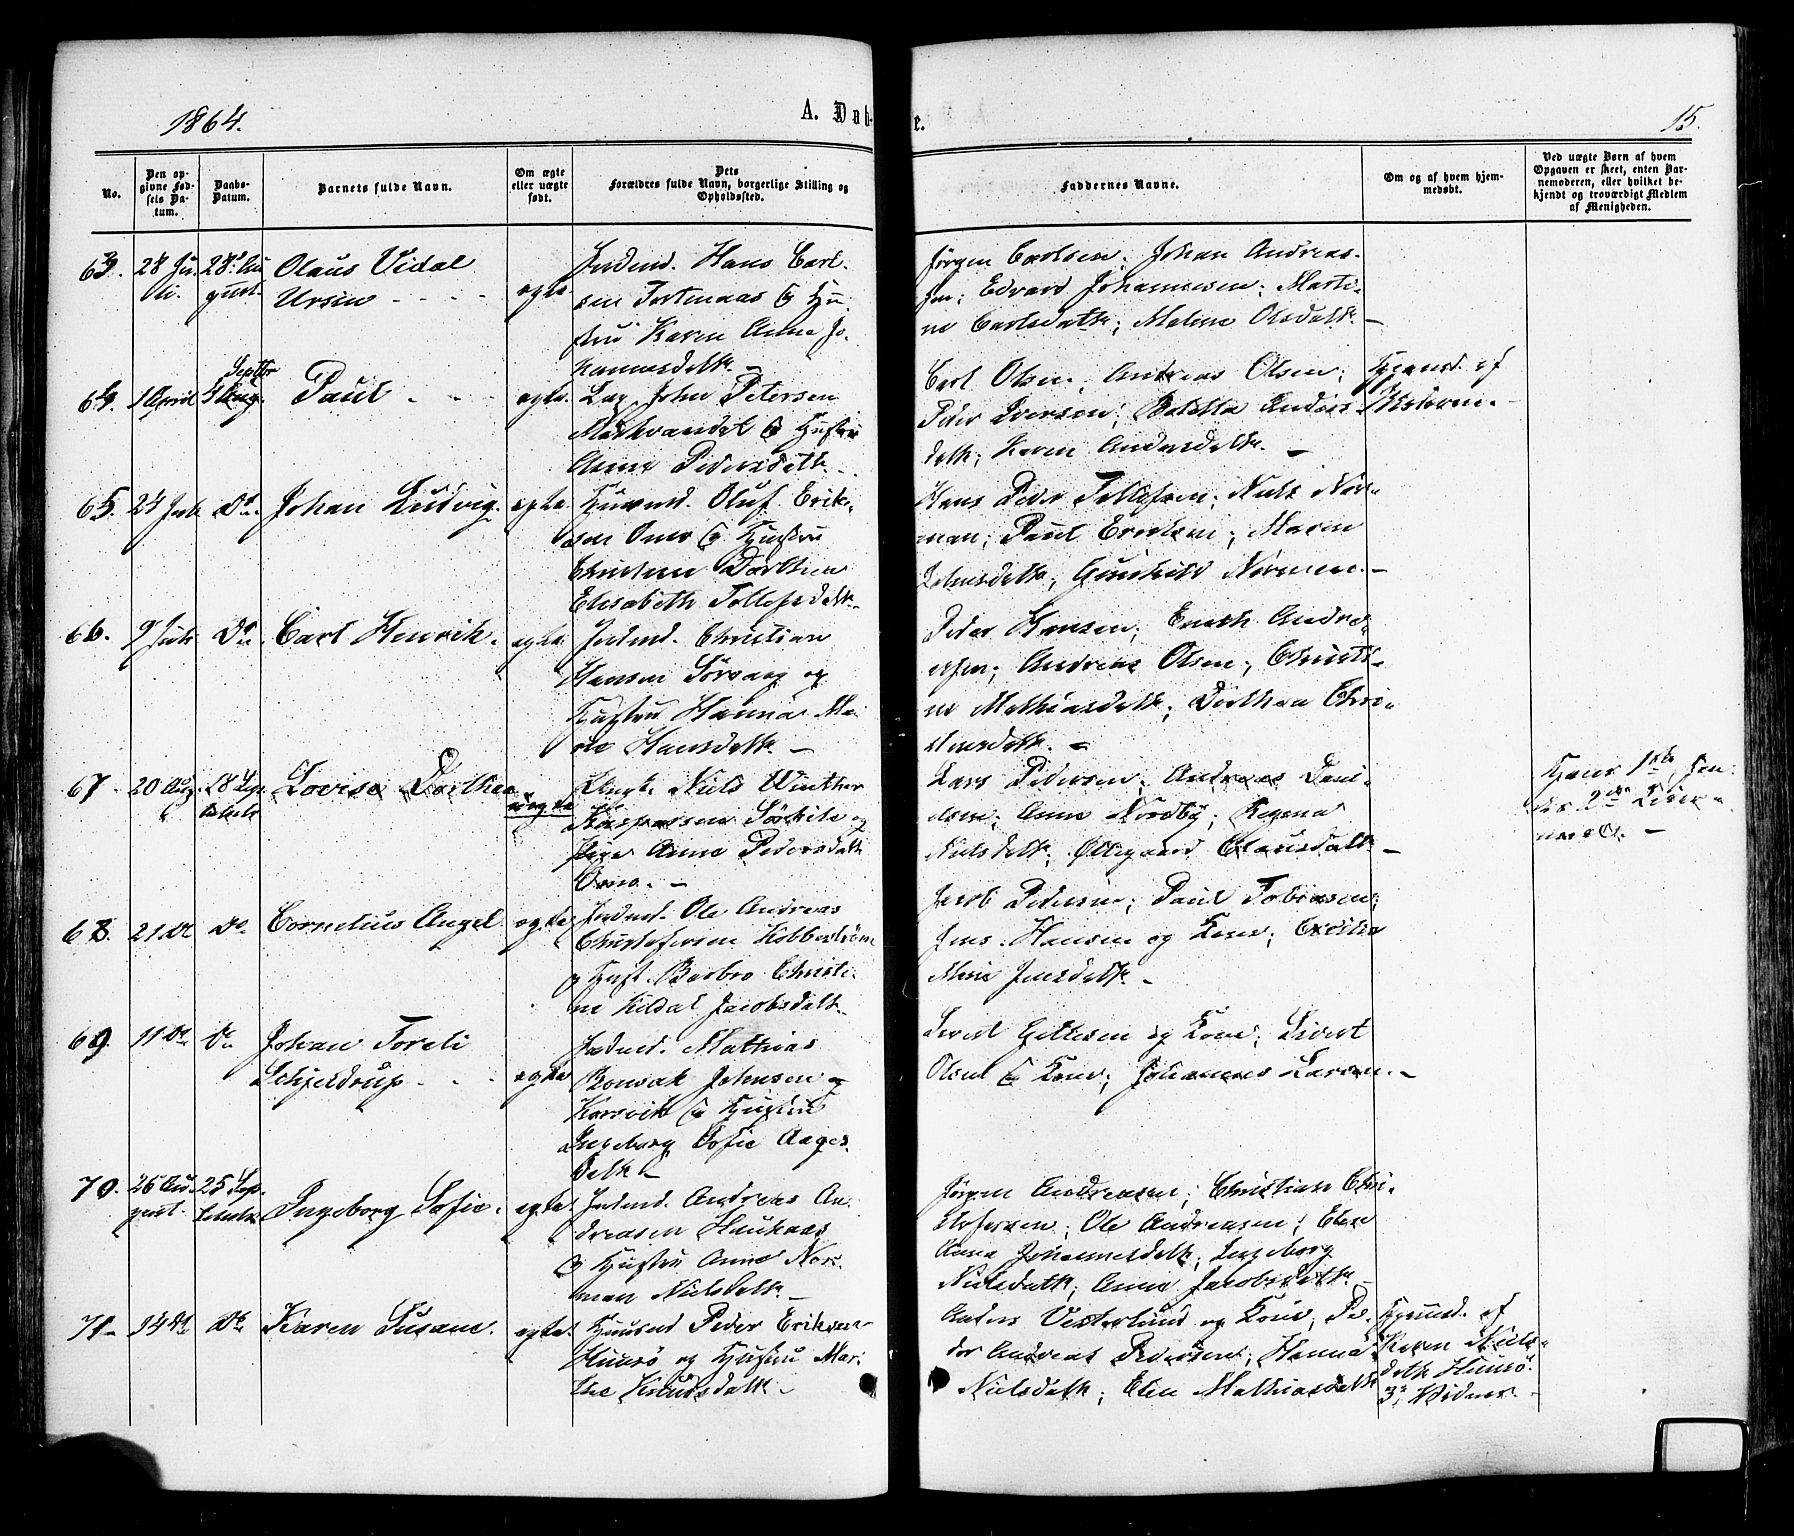 1864.
A. Døb-
e.
15.
No.
Den op-
givne Fød-
sels Da-
tum.
Daabs-
Datum.
Barnets fulde Navn.
Om ægte
eller uægte
født.
Dets
Forældres fulde Navn, borgerlige Stilling og
Opholdssted.
Faddernes Navne.
Om og af hvem hjem-
medøbt.
Ved uægte Børn af hvem
Opgaven er skeet, enten Bar-
nemoderen, eller hvilket be-
kjendt og troværdigt Medlem
af Menigheden.
63.
28 Ju-
li.
28. Au
gust.
Olaus Vidal
Ursin
ægte
Indend. Hans Carl-
sen Tortenaas og Hu-
stru Karen Anna Jo-
hannesdatt.
Jørgen Carlsen; Johan Andreas-
sen; Edvard Johannesen; Marti-
ne Carlsdatt; Maline Olsdatt.
64.
1 April
Septbr
4
Paul
ægte.
John Petersen
og Hustru
Anne Pedersdatt.
Carl Olsen; Andreas Olsen;
Peder Iversen; Beletta Anders-
datt; Karen Andersdatt.
Hjemd. af
65.
24 Juli
Do.
Johan Ludvig.
ægte
Huusmd. Oluf Erik-
sen Onø og Hustru
Christine Dorthea
Elisabeth Tollefsdatt.
Hans Peder Tollefsen; Niels Nor-
man; Paul Eriksen; Maren
Johnsdatt; Gunhild Norman.
66.
9 Juli
Do.
Carl Henrik.
ægte
Indend. Christian
Hansen Sørvaag og
Hustru Hanna Ma-
rie Hansdatt.
Peder Hansen; Enoch Andre-
asen; Andreas Olsen; Christi-
ne Mathiasdatt; Dorthea Chri-
stensdatt.
67
20 Aug.
18 Sep
tember
Lovise Dorthea
uægte
Ungk. Niels Winther
Kaspersen og
Pige Anne Pedersdatt
Onø.
Lars Pedersen; Andreas Dani-
elsen; Anne Nordby; Regina
Nielsdatt; Ollegaard Clausdatt.
68.
21 Do
Do.
Cornelius Angel
ægte
Indend. Ole Andreas
Christofersen Kobberstrøm
og Hust. Barbro Christi-
ne Kildal Jacobsdatt.
Jacob Pedersen; Paul Tobiasen;
Jens Hansen og Kone; Cecilia
Marie Jensdatt.
69.
11 Do
Do
Johan Toreli
Schjeldrup
ægte
Indend. Mathias
Bonsak Johnsen
Korsvik og Hustru
Ingeborg Sofie Aages-
datt
Sivert og Kone; Sivert
Olsen og Kone; Johannes Larsen.
70.
26 Au-
gust.
25 Sep-
tember
Ingeborg Sofie.
ægte
Indend. Andreas An-
dreasen Haukaas
og Hustru Anne Nor-
man Nielsdatt.
Jørgen Andreasen; Christian Chri-
stofersen; Ole Andreasen; Elen
Anna Johannesdatt; Ingeborg
Nielsdatt; Anne Jacobsdatt.
71
14 Do
Do
Karen Susane.
ægte
Huusmd Peder Eriksen
Huusø og Hustru Mar-
the Knudsdatt.
Anders Vesterlund og Kone; Pe-
der Andreas Pedersen; Hanna
Nielsdatt; Elen Mathiasdatt
Hjemd. af
Karen Niels-
datt Huusø.